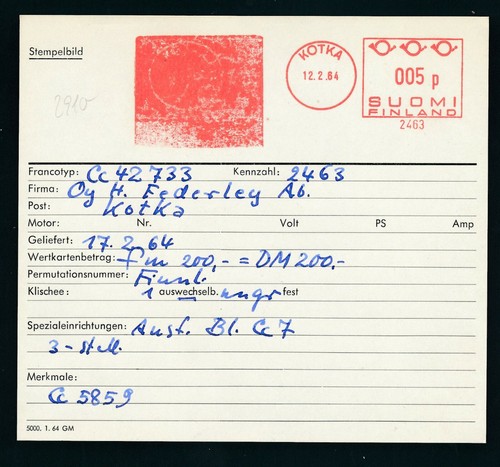 Stempelbild
KOTKA
12.2.64
005 p
SUOMI
FINLAND
2463
2910
Francotyp: Cc 42733 Kennzahl: 2463
Firma: Oy H. Federley Ab.
Post: Kotka
Motor: Nr. Volt PS Amp
Geliefert: 17.2.64
Wertkartenbetrag: fm 200,- = DM 200,-
Permutationsnummer: Finnl.
Klischee: 1 auswechselb. ungr fest
Spezialeinrichtungen: Ausf. Bl. Cc 7
3-stell.
Merkmale:
Cc 5859
5000. 1. 64 GM